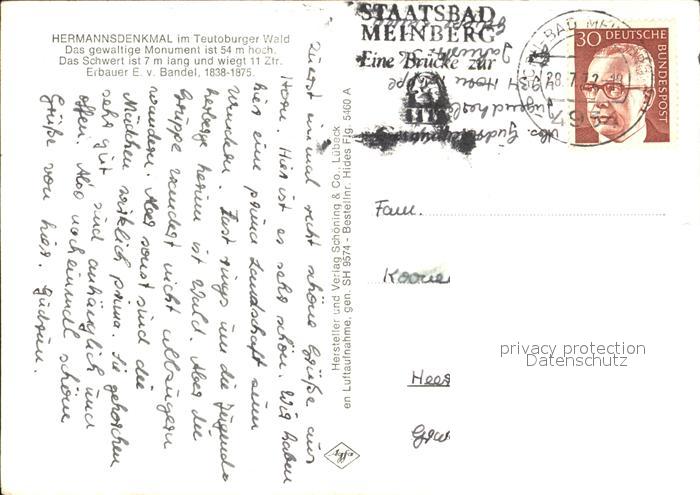 HERMANNSDENKMAL im Teutoburger Wald
Das gewaltige Monument ist 54 m hoch.
Das Schwert ist 7 m lang und wiegt 11 Ztr.
Erbauer E. v. Bandel, 1838-1875.
Zuerst einmal recht schöne Grüße aus
Horn. Hier ist es sehr schön. Wir haben
hier eine prima Landschaft zum
Wandern. Fast rings um die Jugend-
herberge herum ist Wald. Aber die
Gruppe wandert nicht allzugern
wandern. Aber sonst sind die
Mädchen wirklich prima. Sie gehorchen
sehr gut sind anhänglich und
offen. Also noch einmal schöne
Grüße von hier. Gudrun.
Hersteller und Verlag Schöning & Co., Lübeck
en Luftaufnahme, gen. SH 9574 - Bestellnr. Hides Fjg. 5460 A
STAATSBAD
MEINBERG
Eine Brücke zur
BAD MEINBERG
28.7.72
4934
30 DEUTSCHE
BUNDESPOST
Abs. Gudrun
Jugendherberge
4934 Horn
Fam.
Heer
privacy protection
Datenschutz